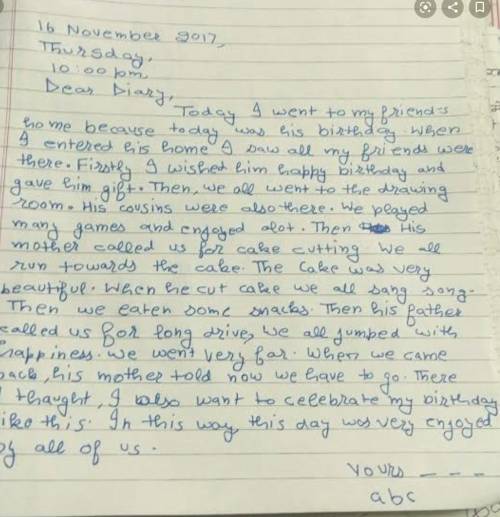 16 November 2017,
Thursday,
10:00 pm
Dear Diary,
Today I went to my friend's
home because today was his birthday. When
I entered his home I saw all my friends were
there. Firstly I wished him happy birthday and
gave him gift. Then, we all went to the drawing
room. His cousins were also there. We played
many games and enjoyed alot. Then His
mother called us for cake cutting We all
run towards the cake. The cake was very
beautiful. When he cut cake we all sang song.
Then we eaten some snacks. Then his father
called us for long drive, We all jumped with
happiness. We went very far. When we came
back, his mother told now we have to go. There
I thaught, I also want to celebrate my birthday
like this. In this way, this day was very enjoyed
by all of us.
Yours _ _ _
abc